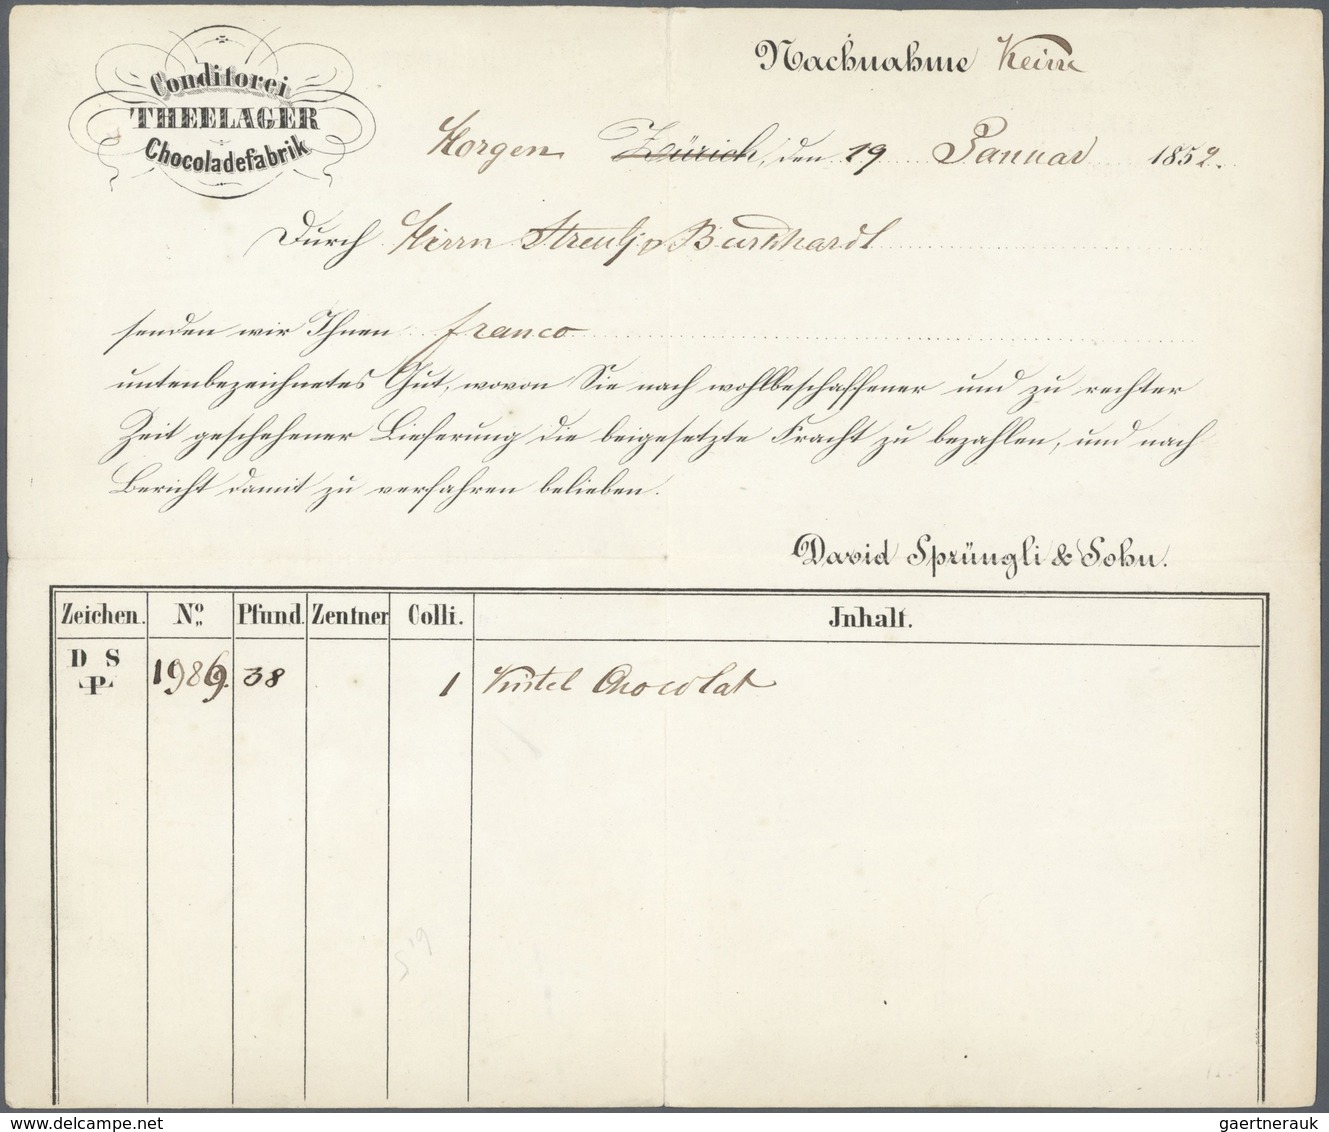 Conditorei
THEELAGER
Chocoladefabrik
Nachnahme Keine
Horgen Zürich, den 19 Januar 1859.
Durch Herrn Streuli, Burkhardt
senden wir Ihnen franco
untenbezeichnetes Gut, wovon Sie nach wohlbeschaffener und zu rechter
Zeit geschehener Lieferung die beigesetzte Fracht zu bezahlen, und nach
Bericht damit zu verfahren belieben.
David Sprüngli & Sohn.
Zeichen. No. Pfund. Zentner Colli. Jnhalt.
D S
P 1986. 38 1 Kistel Chocolat
www.delcampe.net
gaertnerauk